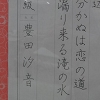 分かぬは恋の道
滴り来る滝の水
級 豊田汐音